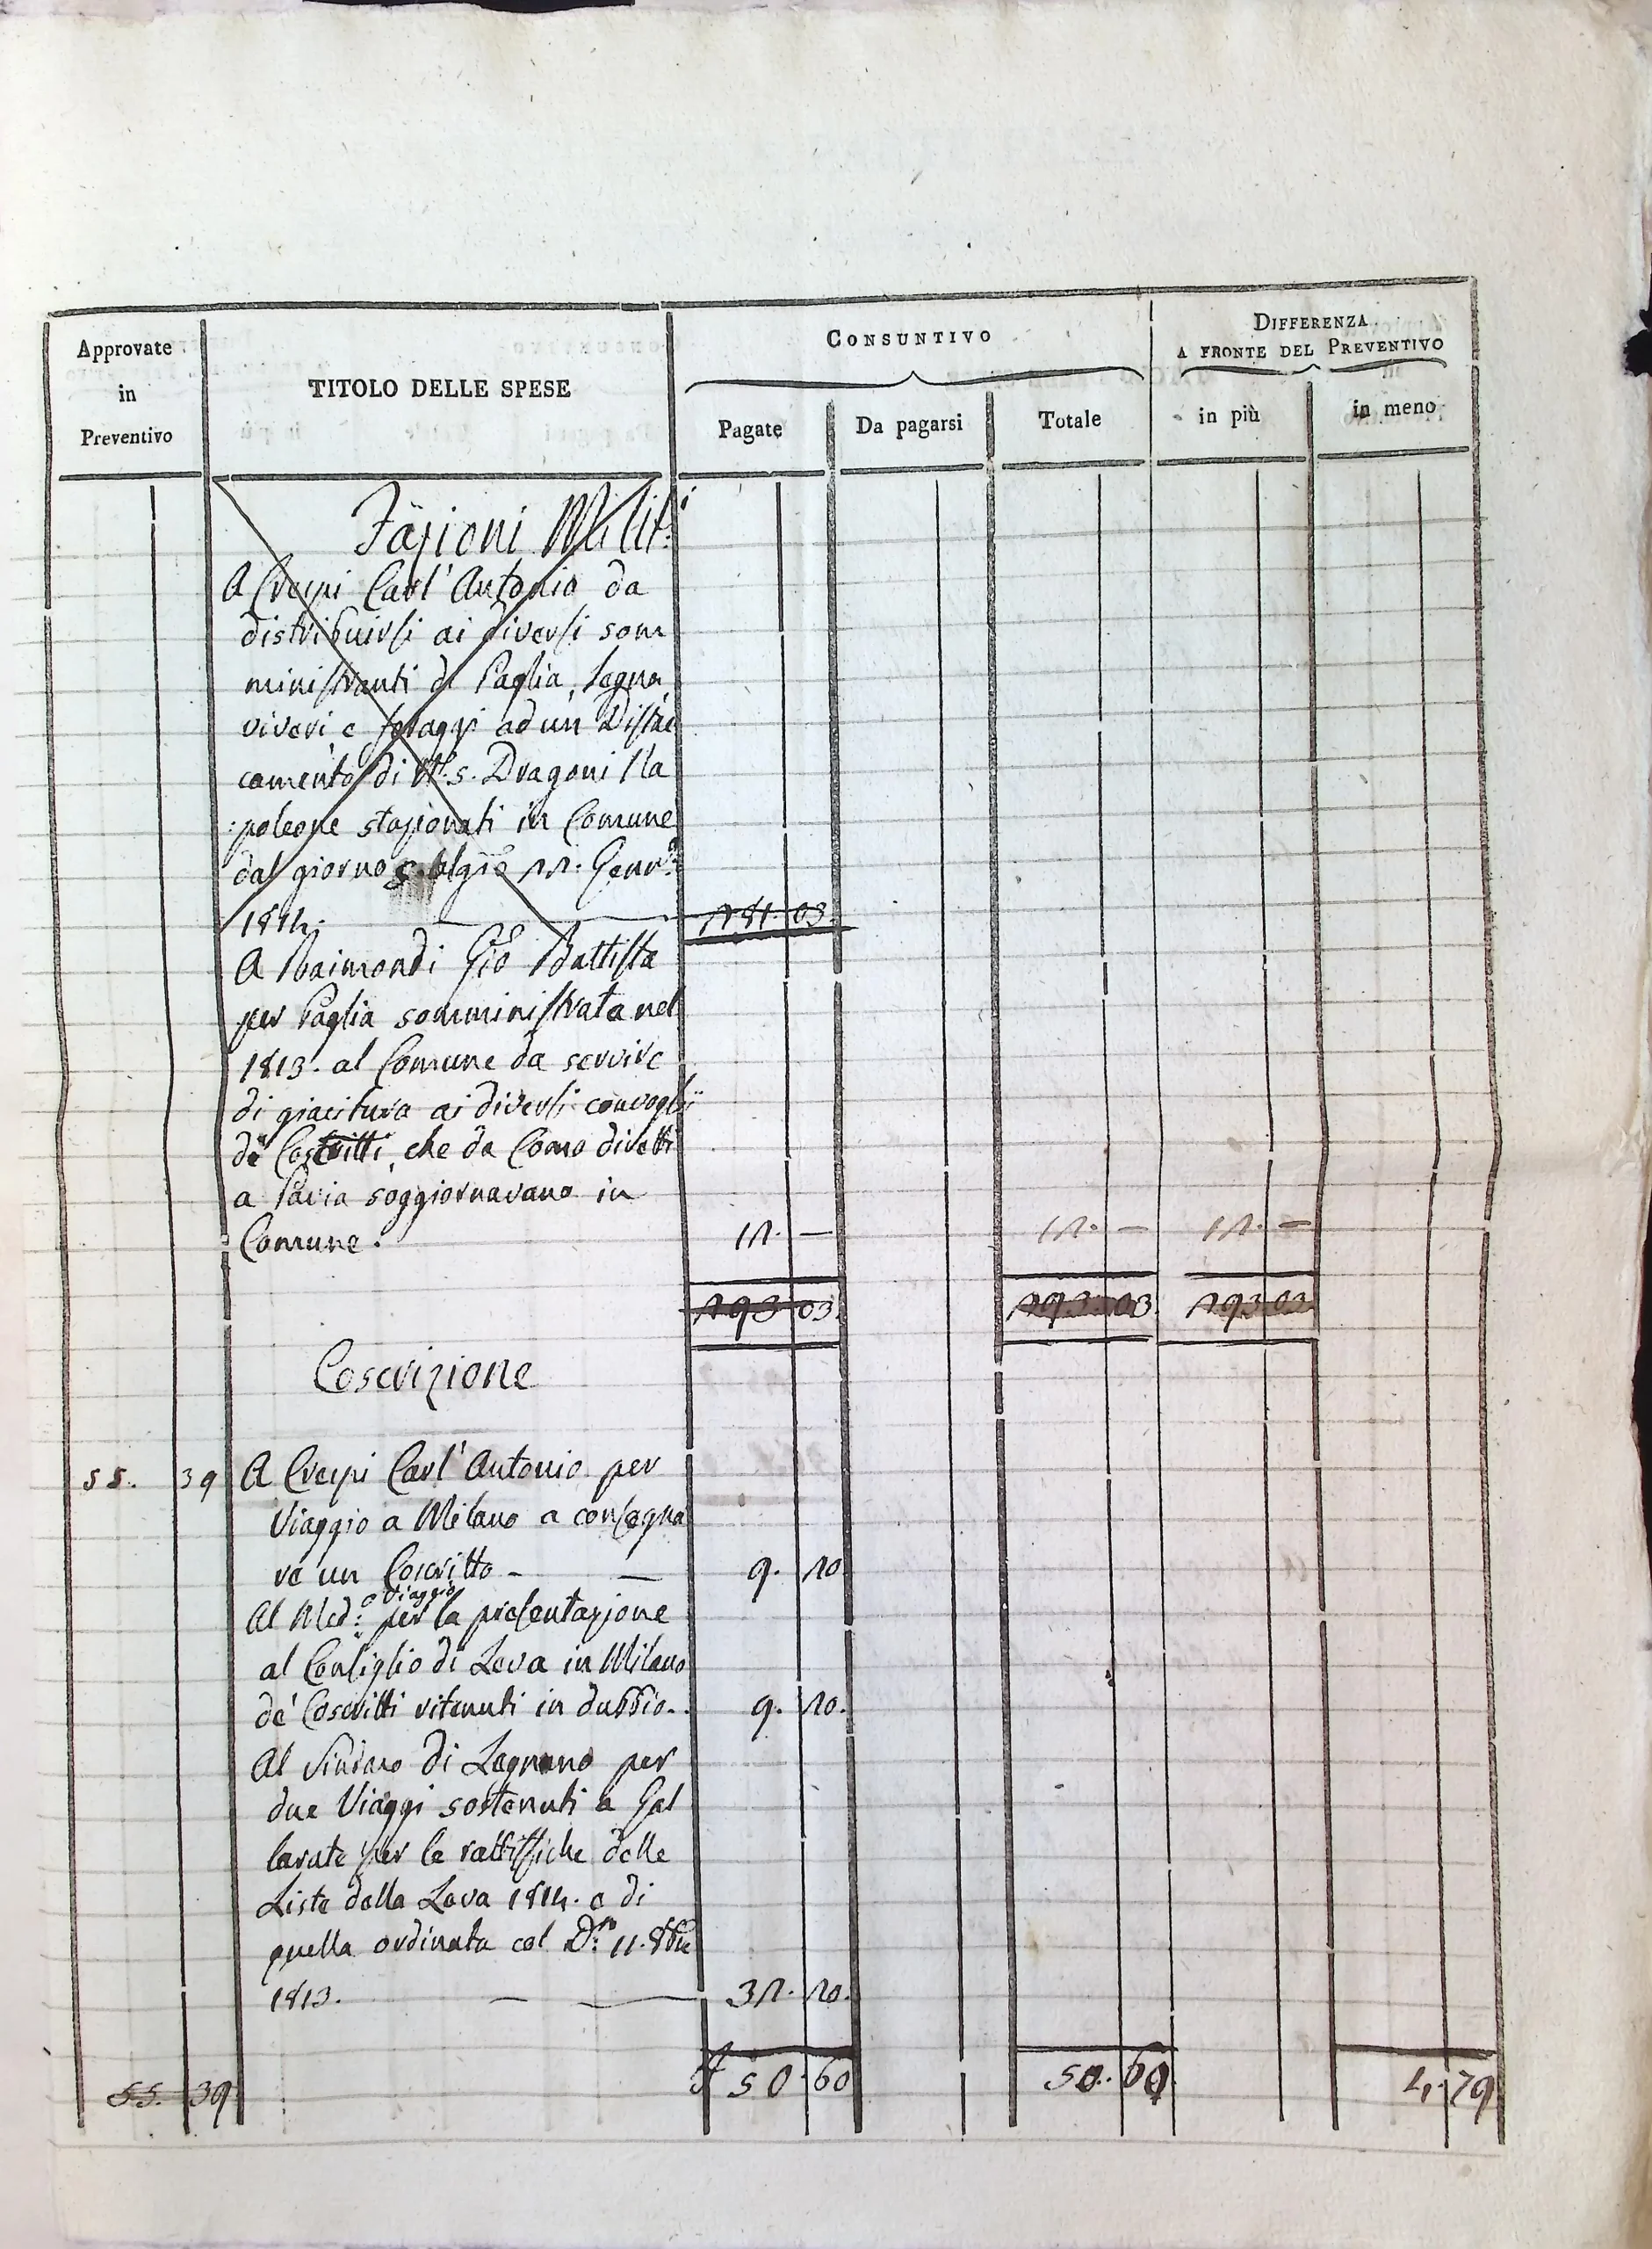 Approvate
in
Preventivo
TITOLO DELLE SPESE
CONSUNTIVO
Pagate
Da pagarsi
Totale
DIFFERENZA
A FRONTE DEL PREVENTIVO
in più
in meno
Fazioni Milit:i
A Crespi Carl'Antonio da
distribuirsi ai diversi som
ministranti di Paglia, Legna,
viveri e foraggi ad un Distac
camento di Dragoni Na
:poleone stazionati in Comune
dal giorno al gio 22. Genn.o
1814. 281. 03.
A Raimondi Gio Battista
per Paglia somministrata nel
1813. al Comune da servire
di giacitura ai diversi convoglj
de' Coscritti, che da Como diretti
a Pavia soggiornavano in
Comune. 12. — 12. — 12. —
293 03. 293. 03. 293 03.
Coscrizione
55. 39 A Crespi Carl'Antonio per
Viaggio a Milano a consegna
re un Coscritto - — 9. 20.
Al Med:o Viaggio per la presentazione
al Consiglio di Leva in Milano
de' Coscritti ritenuti in dubbio. 9. 20.
Al Sindaco di Legnano per
due Viaggi sostenuti a Gal
larate per le rattiffiche delle
Liste della Leva 1814. e di
quella ordinata col D:to 11. 8bre
1813. — 32. 20.
55. 39. 50. 60 50. 60. 4. 79